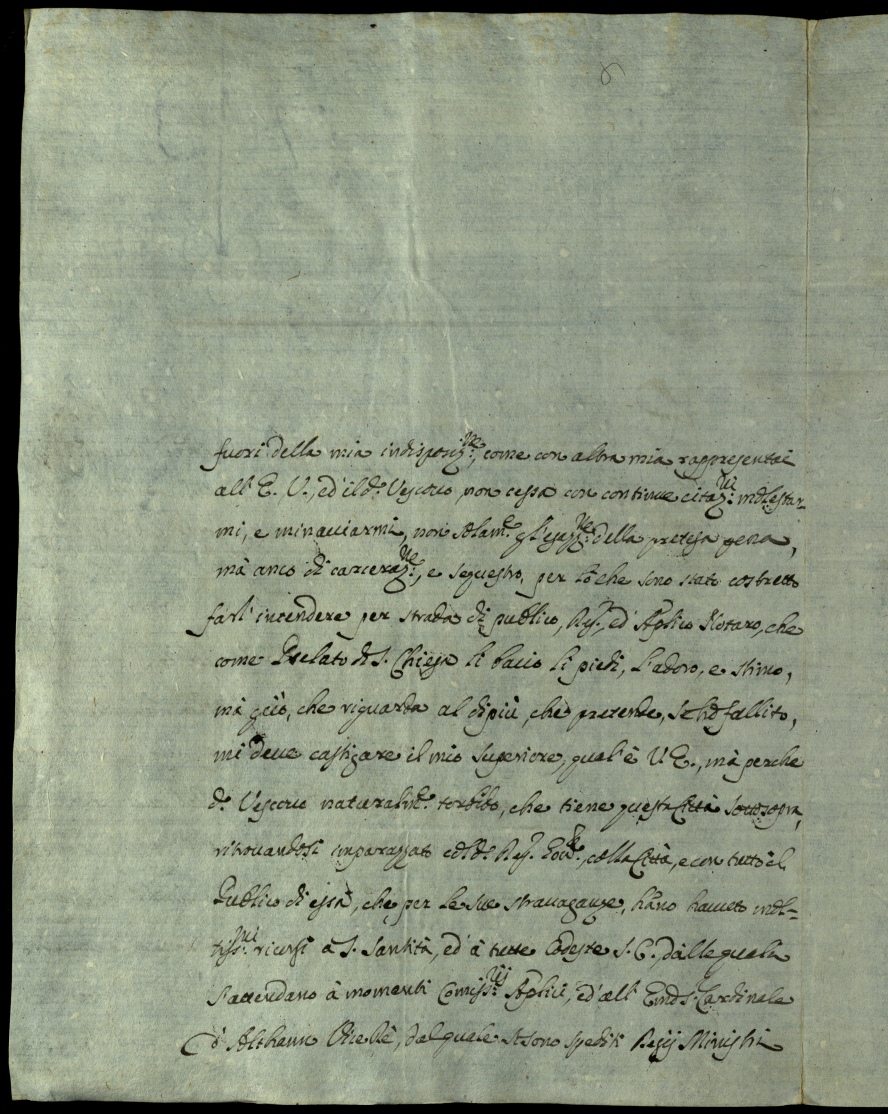 fuori della mia indisposiz.ne, come con altra mia rappresentai
all'E. V., ed'il d.o Vescovo non cessa con continue citaz.ni molestar-
mi, e minacciarmi, non solam.e gl'esaz.ne della pretesa pena,
mà anco di carceraz.ne, e sequestro, per lo che sono stato costretto
farl'intendere per strada di publico, Reg.o, ed'Aplico Notaro, che
come Prelato di S. Chiesa li bacio li piedi, l'adoro, e stimo,
mà ciò, che riguarda al dipiù, che pretende, se hò fallito,
mi deve castigare il mio Superiore, qual'è V. E., mà perche
d.o Vescovo naturalm.e torbido, che tiene questa Città sottosopra,
ritrovandosi imparazzato col d.o Reg.o Gov.re, colla Città, e con tutto il
Publico di essa, che per le sue stravaganze, hano havuto mol-
tiss.mi ricorsi à S. Santità, ed'à tutte codeste S. C., dalle quali
s'attendano à momenti Comiss.rij Aplici, ed'all'Emo S.r Cardinale
d'Althann Vice Rè, dal quale si sono spediti Regij Ministri